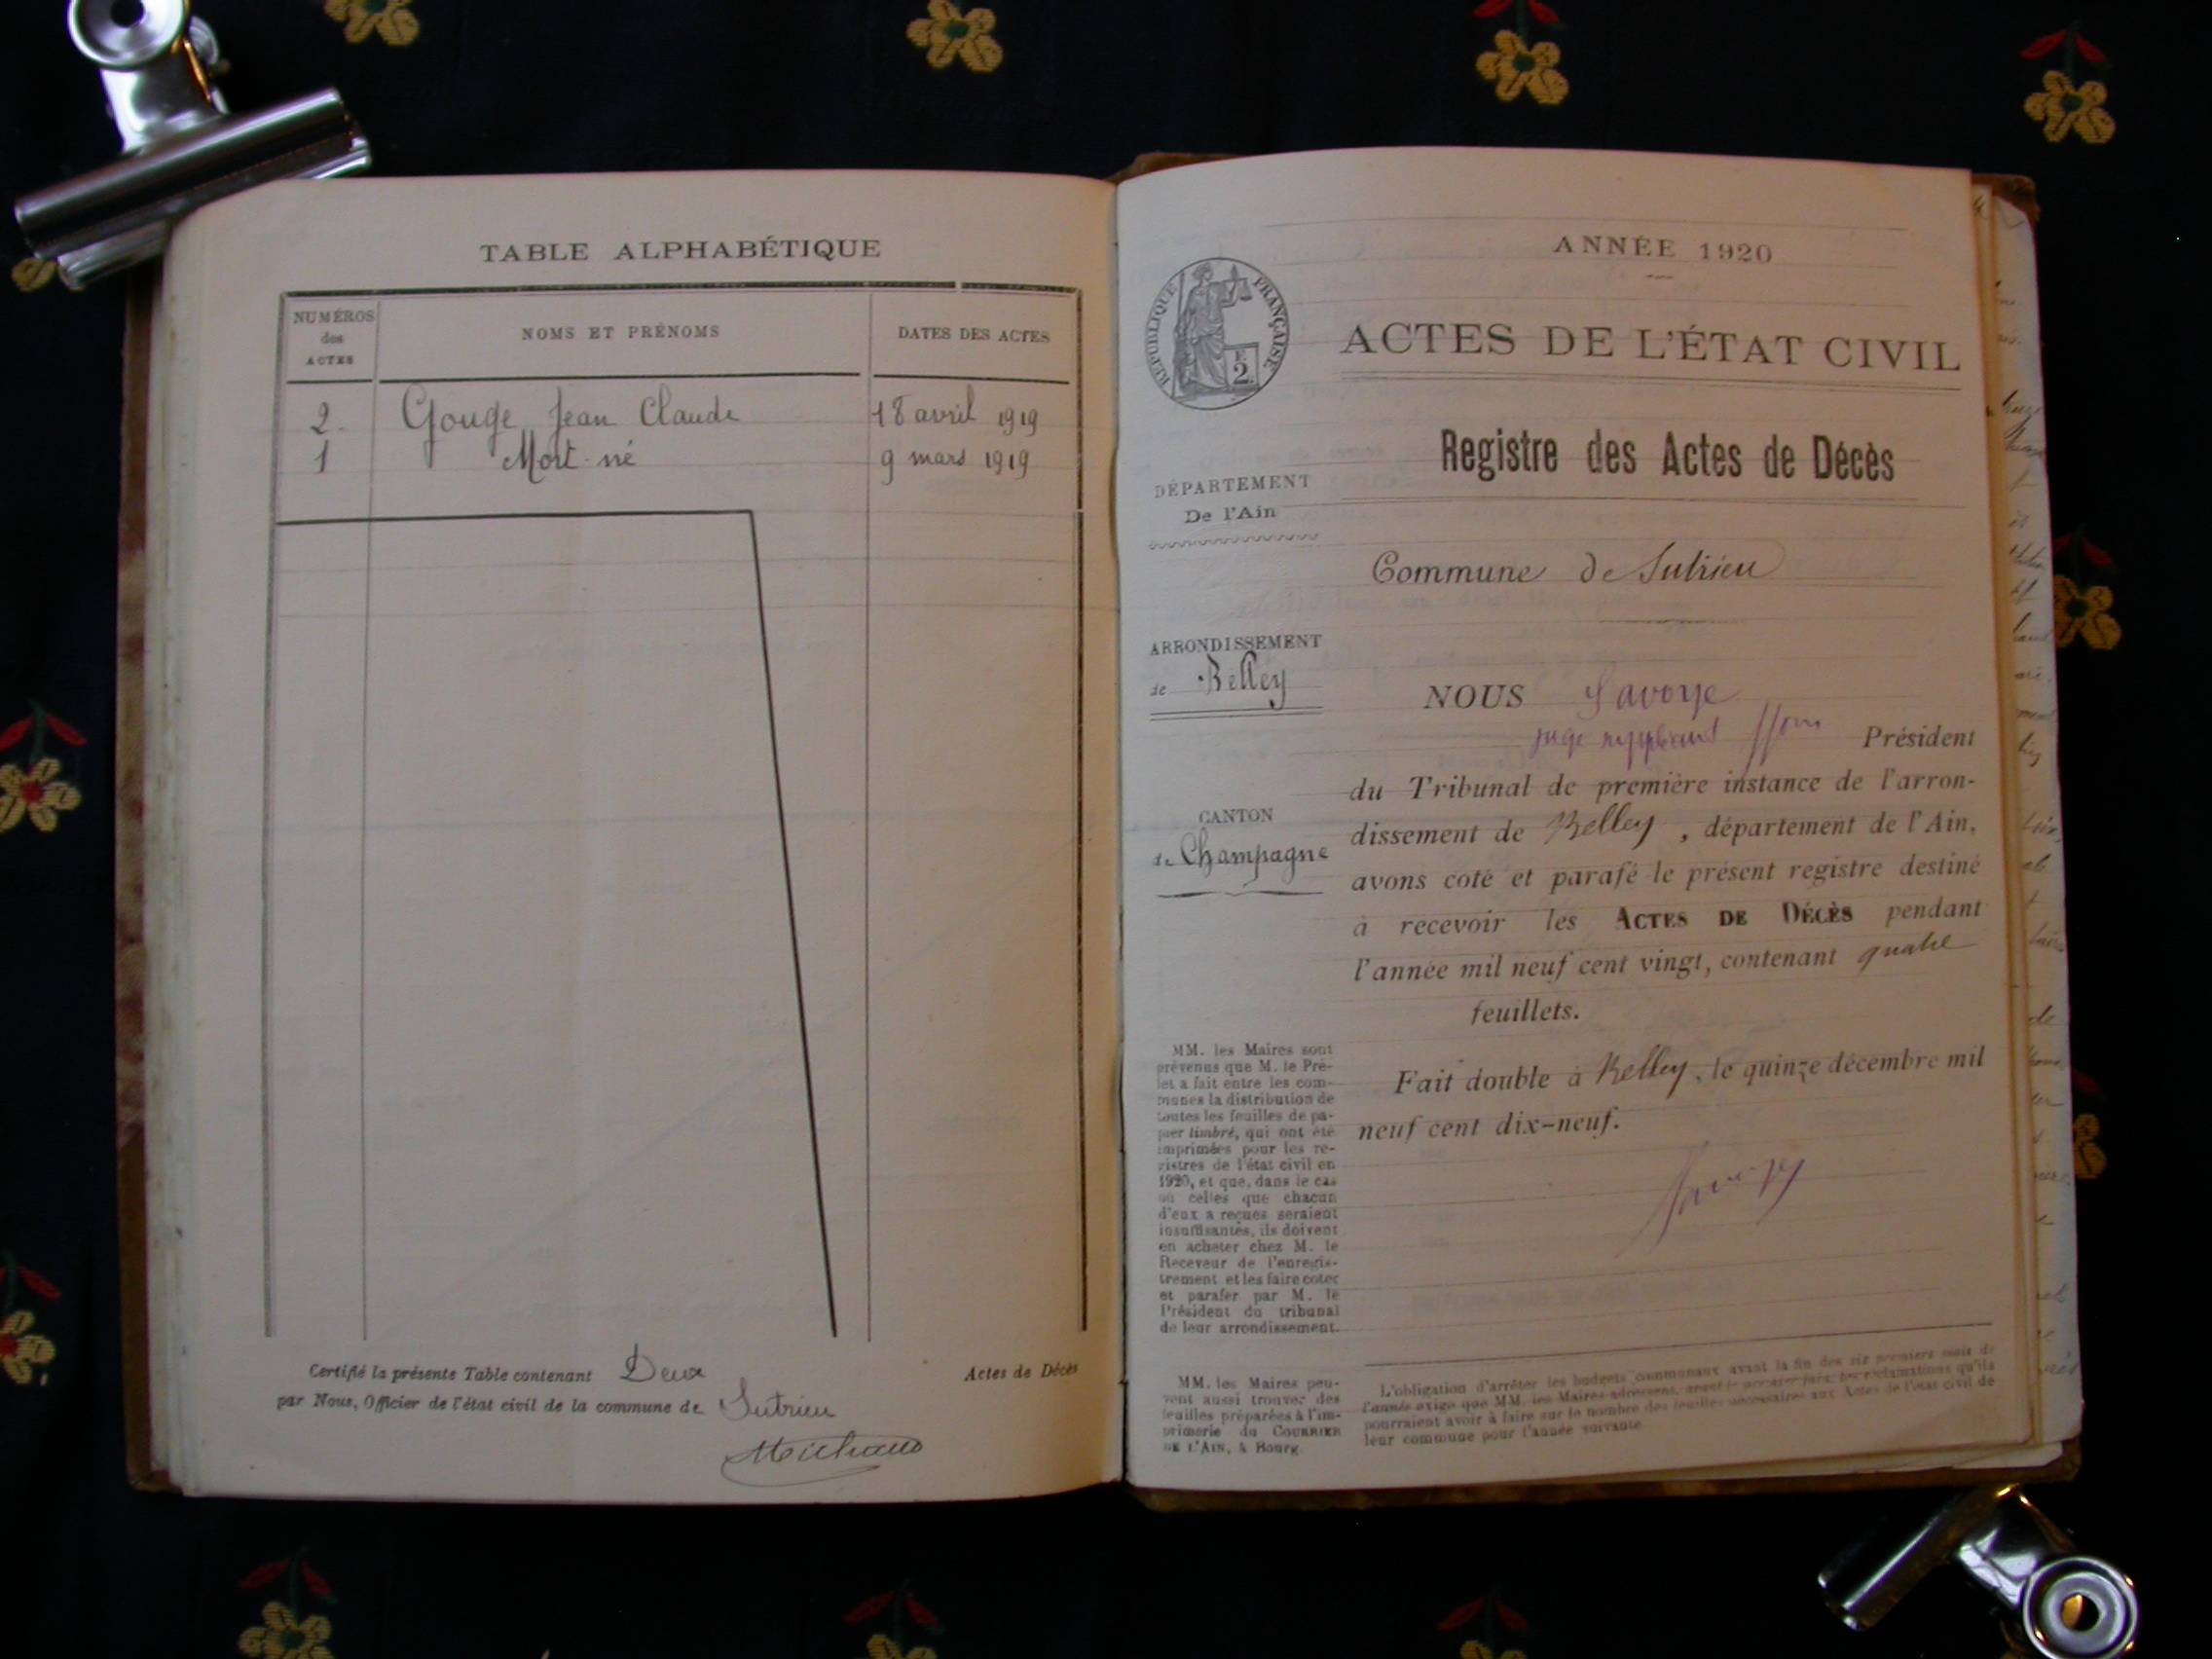 TABLE ALPHABÉTIQUE
NUMÉROS
des
ACTES
NOMS ET PRÉNOMS
DATES DES ACTES
2. Gouge Jean Claude 18 avril 1919
1 Mort-né 9 mars 1919
Certifié la présente Table contenant Deux Actes de Décès
par Nous, Officier de l'état civil de la commune de Sutrieu
Michaud
ANNÉE 1920
RÉPUBLIQUE FRANÇAISE
2
ACTES DE L'ÉTAT CIVIL
Registre des Actes de Décès
DÉPARTEMENT
De l'Ain
Commune de Sutrieu
ARRONDISSEMENT
de Belley
CANTON
de Champagne
NOUS Savoye
juge suppléant Président
du Tribunal de première instance de l'arron-
dissement de Belley, département de l'Ain,
avons coté et parafé le présent registre destiné
à recevoir les ACTES DE DÉCÈS pendant
l'année mil neuf cent vingt, contenant quatre
feuillets.
Fait double à Belley, le quinze décembre mil
neuf cent dix-neuf.
Savoye
MM. les Maires sont
prévenus que M. le Pré-
fet a fait entre les com-
munes la distribution de
toutes les feuilles de pa-
pier timbré, qui ont été
imprimées pour les re-
gistres de l'état civil en
1920, et que, dans le cas
où celles que chacun
d'eux a reçues seraient
insuffisantes, ils doivent
en acheter chez M. le
Receveur de l'enregis-
trement et les faire coter
et parafer par M. le
Président du tribunal
de leur arrondissement.
MM. les Maires peu-
vent aussi trouver des
feuilles préparées à l'im-
primerie du COURRIER
DE L'AIN, à Bourg.
L'obligation d'arrêter les budgets communaux avant la fin des six premiers mois de
l'année exige que MM. les Maires adressent, avant le premier juin, les réclamations qu'ils
pourraient avoir à faire sur le nombre des feuilles nécessaires aux Actes de l'état civil de
leur commune pour l'année suivante